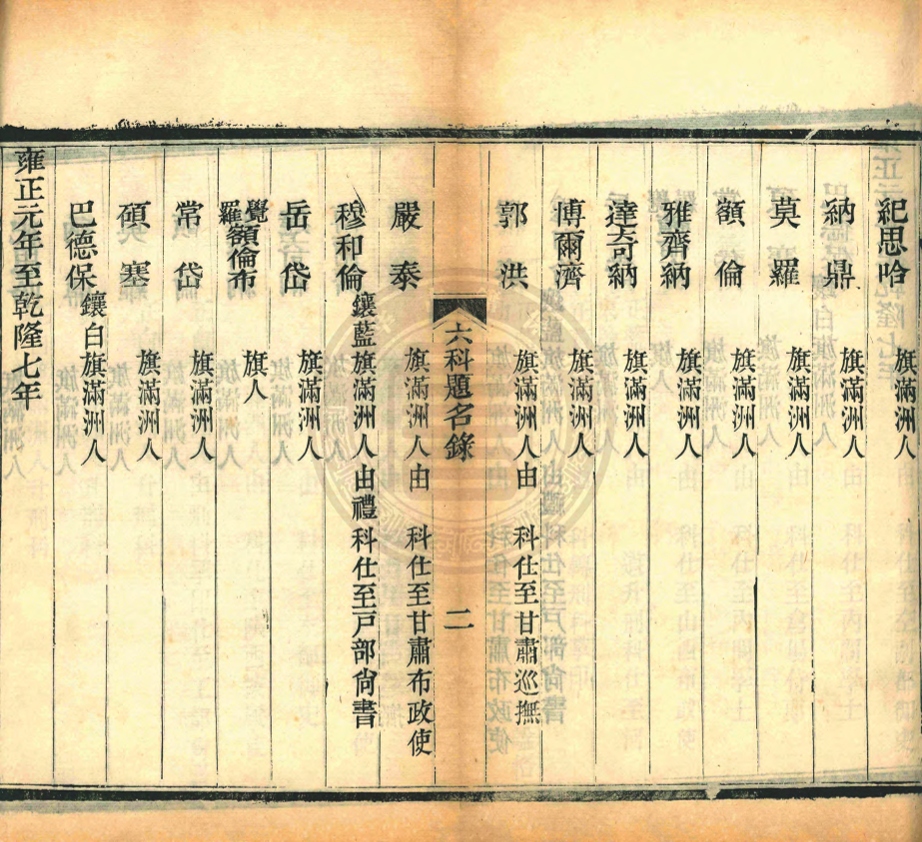 紀思哈 旗滿洲人
納鼎 旗滿洲人
莫羅 旗滿洲人
額倫 旗滿洲人
雅齊納 旗滿洲人
達奇納 旗滿洲人
博爾濟 旗滿洲人
郭洪 旗滿洲人由 科仕至甘肅巡撫
六科題名錄 二
嚴泰 旗滿洲人由 科仕至甘肅布政使
穆和倫 鑲藍旗滿洲人由禮科仕至戸部尙書
岳岱 旗滿洲人
覺羅額倫布 旗人
常岱 旗滿洲人
碩塞 旗滿洲人
巴德保 鑲白旗滿洲人
雍正元年至乾隆七年